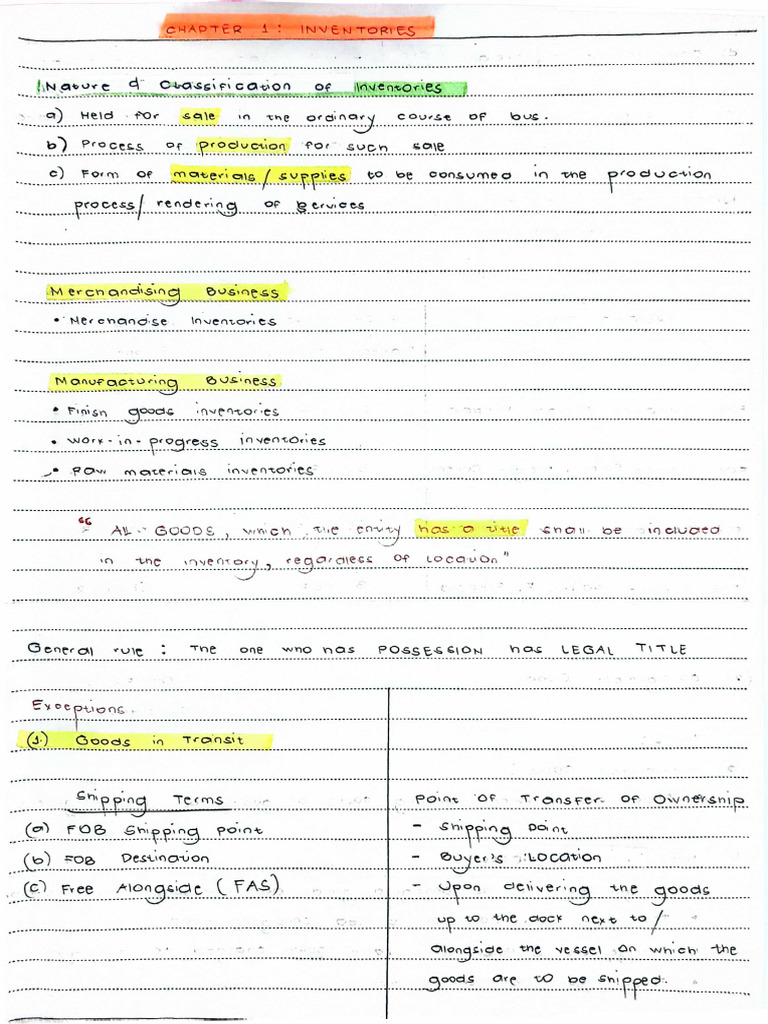 CHAPTER 1: INVENTORIES
Nature & Classification of Inventories
a) Held for sale in the ordinary course of bus.
b) Process of production for such sale
c) Form of materials/supplies to be consumed in the production
process/rendering of services
Merchandising Business
• Merchandise Inventories
Manufacturing Business
• Finish goods inventories
• Work-in-progress inventories
• Raw materials inventories
“ ALL GOODS, which the entity has a title shall be included
in the inventory, regardless of location"
General rule : The one who has POSSESSION has LEGAL TITLE
Exceptions.
(1.) Goods in Transit
Shipping Terms
(a) FOB Shipping point
(b) FOB Destination
(c) Free Alongside (FAS)
Point of Transfer of Ownership
- Shipping Point
- Buyer's Location
- Upon delivering the goods
up to the dock next to/
alongside the vessel on which the
goods are to be shipped.